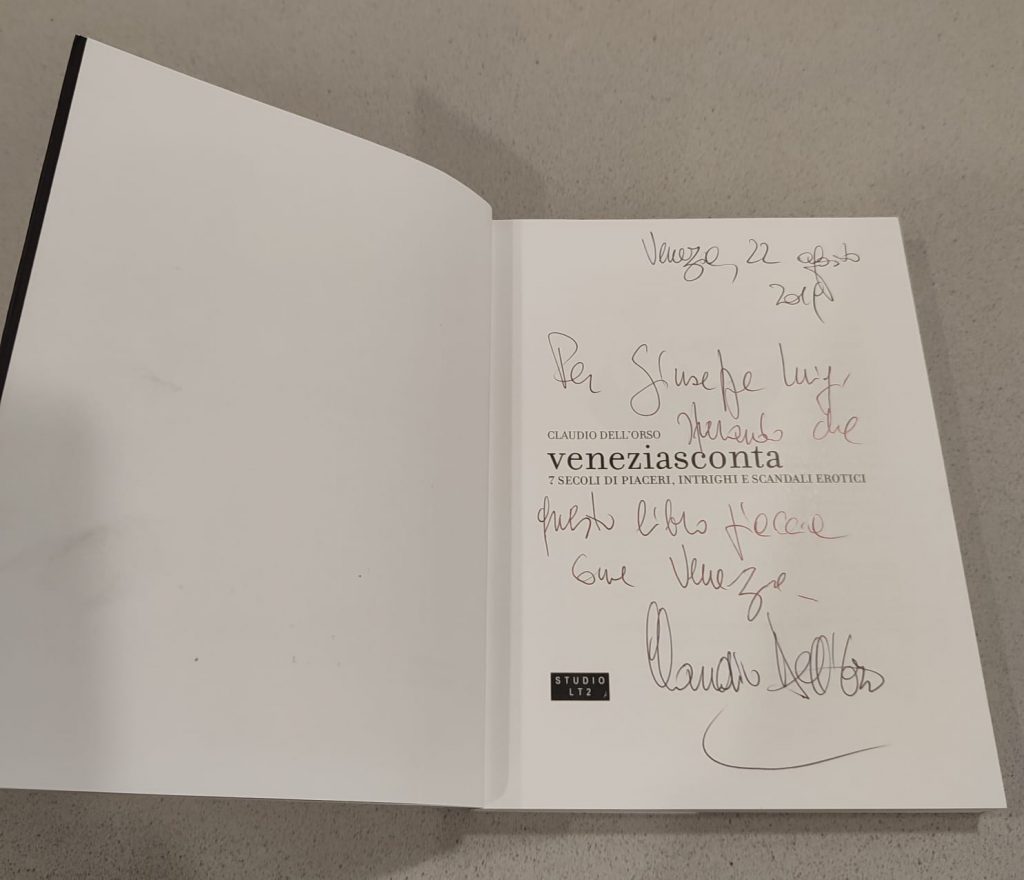 Venezia, 22 agosto
Per Giuseppe Luigi,
sperando che
CLAUDIO DELL'ORSO
veneziasconta
7 SECOLI DI PIACERI, INTRIGHI E SCANDALI EROTICI
questo libro piaccia
come Venezia
Claudio Dell'Orso
STUDIO
LT2